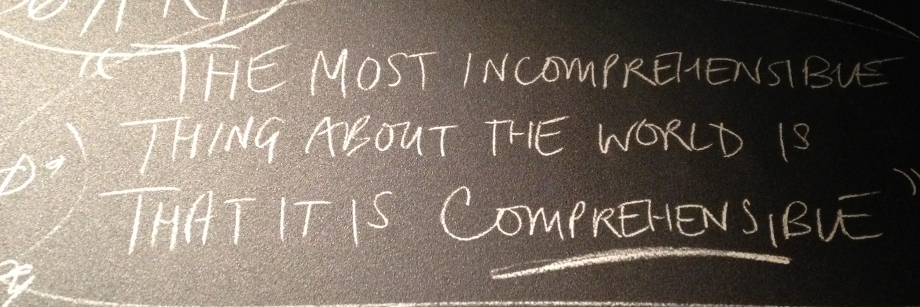 "THE MOST INCOMPREHENSIBLE
THING ABOUT THE WORLD IS
THAT IT IS COMPREHENSIBLE"